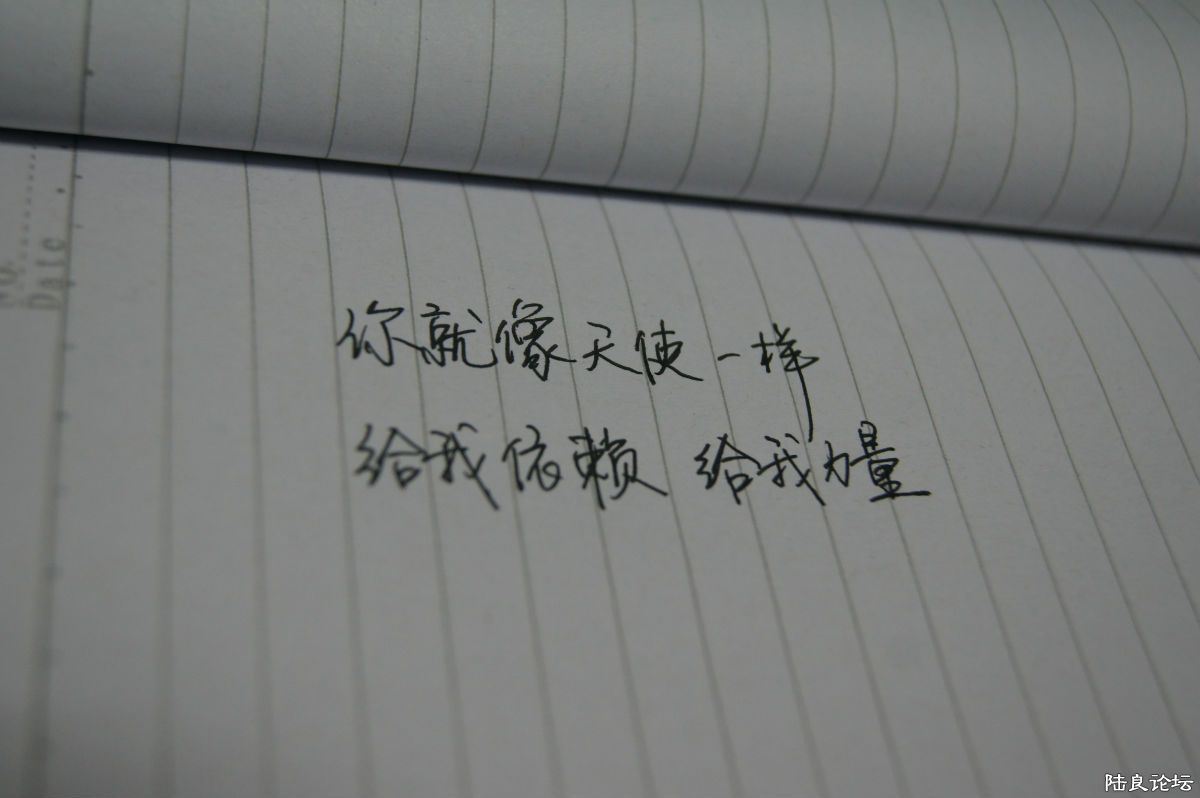 No.
Date
你就像天使一样
给我依赖 给我力量
陆良论坛